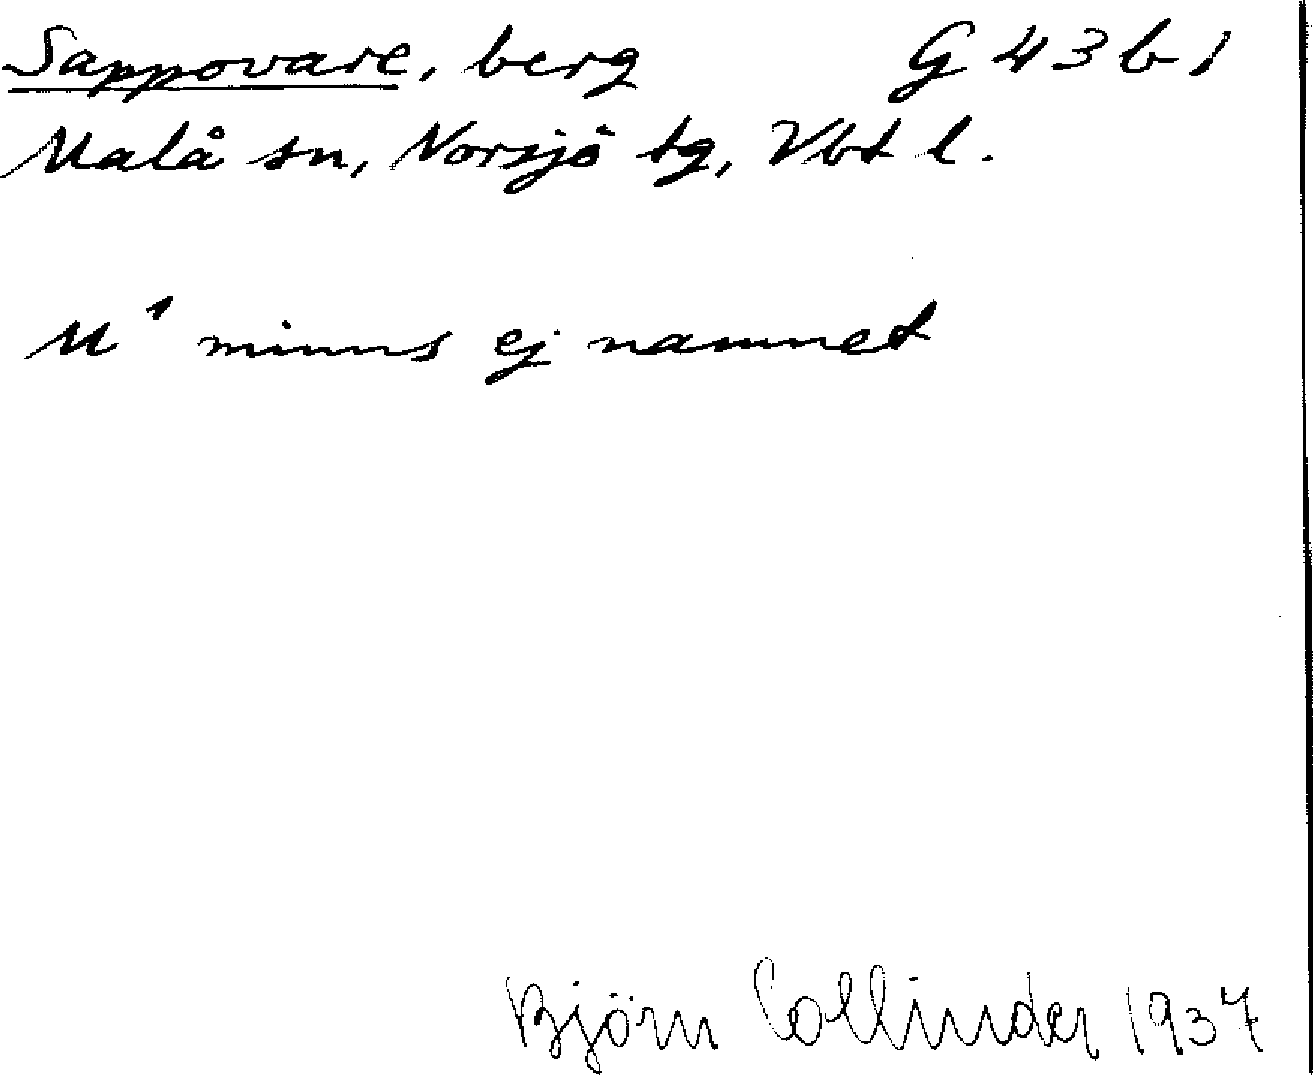 Sappovare, berg G 43 b 1
Malå sn, Norsjö tg, Vbt l.
M¹ minns ej namnet
Björn Collinder 1937